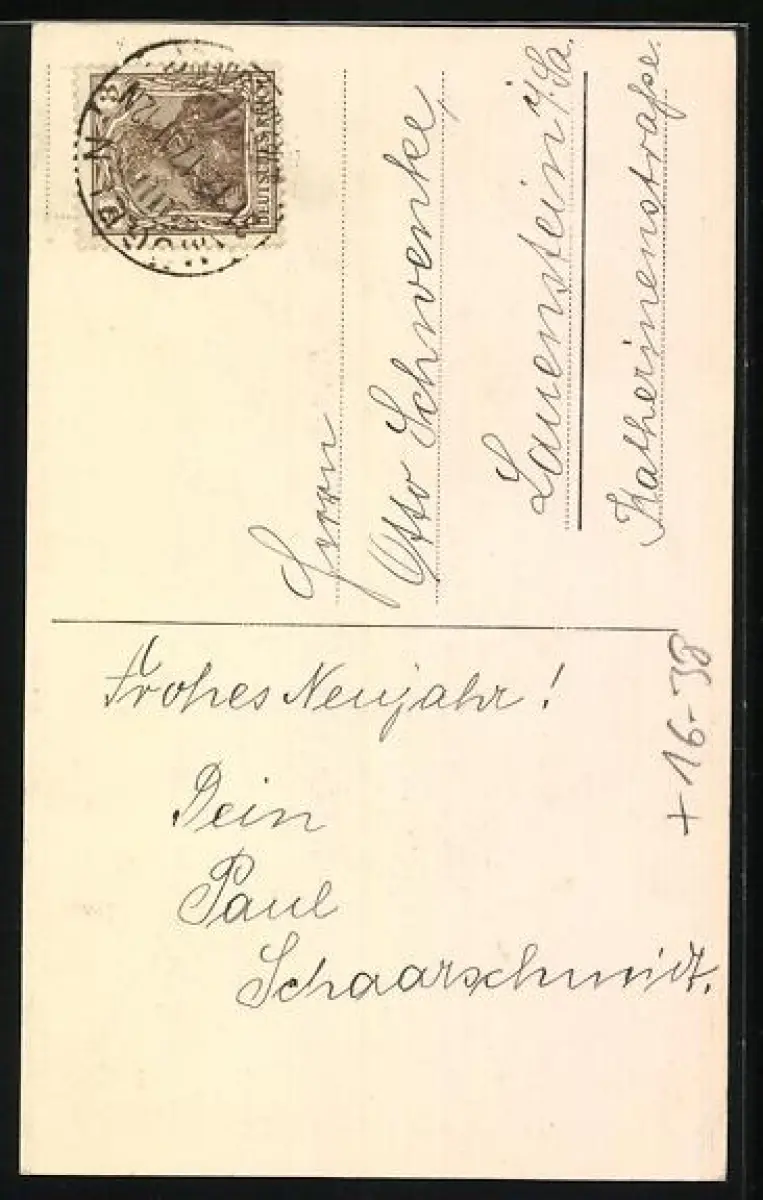 Frohes Neujahr!
Dein
Paul
Schaarschmidt.
+ 16-38
DEUTSCHES REICH
3
Herrn
Otto Schwenke,
Lauenstein i/Sa.
Katherinenstraße.